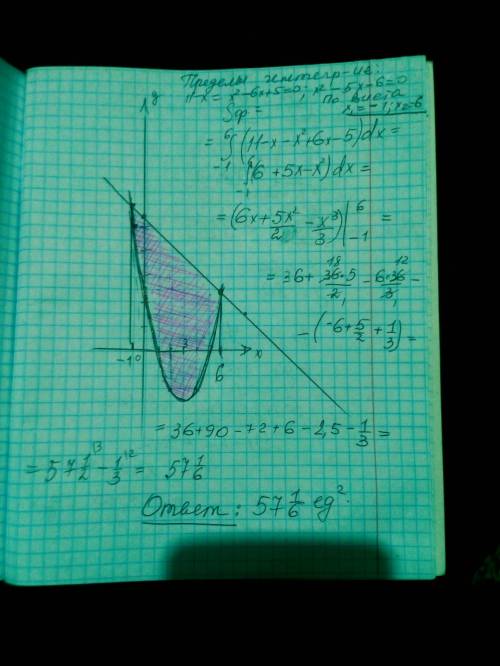 Пределы интегр-ия:
11-x = x²-6x+5=0; x²-5x-6=0
По Виета
Sф = x₁=-1; x₂=6
= ∫₋₁⁶ (11-x-x²+6x-5)dx =
∫₋₁⁶ (6+5x-x²)dx =
= (6x + 5x²/2 - x³/3) |₋₁⁶ =
= 36 + 36·5/2 - 6·36/3 -
18 12
1 1
- (-6 + 5/2 + 1/3) =
y
-1 0 3 6 x
= 36+90-72+6-2,5-1/3 =
= 57 1/2 - 1/3 = 57 1/6
Ответ: 57 1/6 ед².